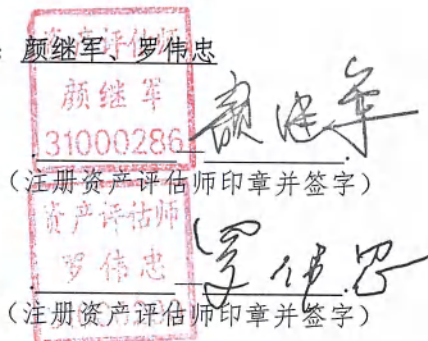 ：颜继军、罗伟忠
资产评估师
颜继军
31000286
颜继军
（注册资产评估师印章并签字）
资产评估师
罗伟忠
罗伟忠
（注册资产评估师印章并签字）